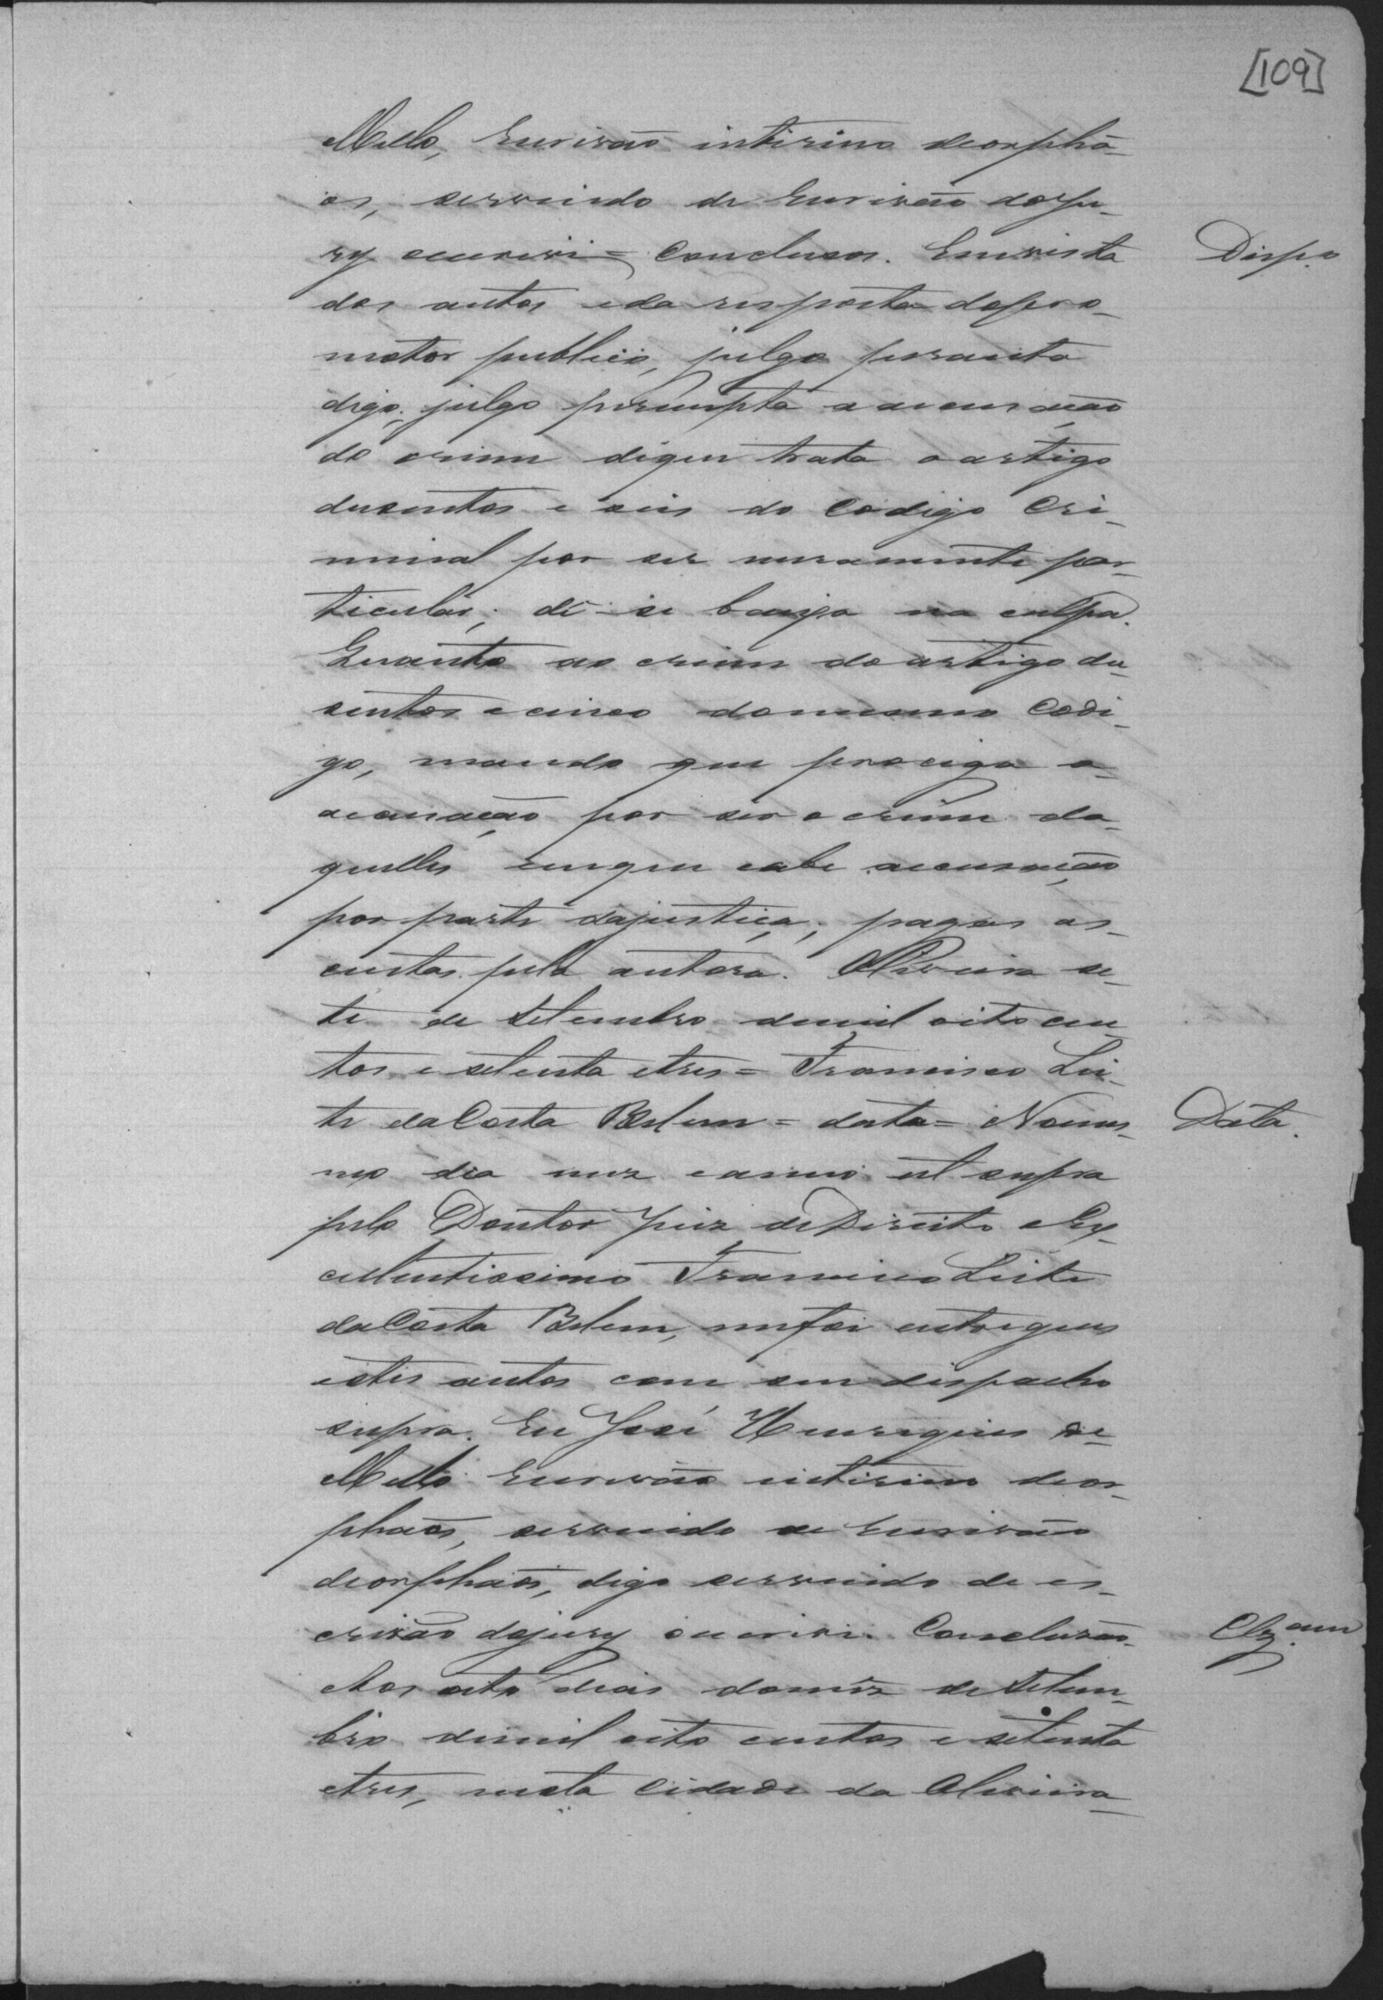 [109]
Mello, Escrivão intirino deorphã-
os, servindo de Escrivão doju-
ry escrivi = Conclusos. Emvista
Desp.º
dos autos eda resposta dopro-
motor publico, julgo peranta
digo, julgo perempta a accusação
do crime dequem trata o artigo
dusentos e seis do Codigo Cri-
minal por ser meramente par-
ticular; dê-se baixa na culpa.
Quanto ao crime do artigo du-
sentos e cinco domesmo Codi-
go, mando que prociga a
accusação por ser o crime da-
quelles emque cabe accusação
por parte dajustiça; pagas as
custas pela autora. Oliveira se-
te de Setembro demil oito cen
tos e setenta etres = Francisco Lei-
te daCosta Belem = data = Nomes-
Data.
mo dia mez eanno ut supra
pelo Doutor Juiz deDireito eEx-
cellentissimo Francisco Leite
daCosta Belem, mefoi entregues
estes autos com seu despacho
supra. Eu José Henriques de
Mello Escrivão intirino deor-
phaõs, servindo de Escrivão
deorphaõs, digo servindo de es-
crivão dojury escrivi. Conclusão
Clz.am
Aos oito dias domez deSetem-
bro demil oito centos e setenta
etres, nesta Cidade da Oliveira